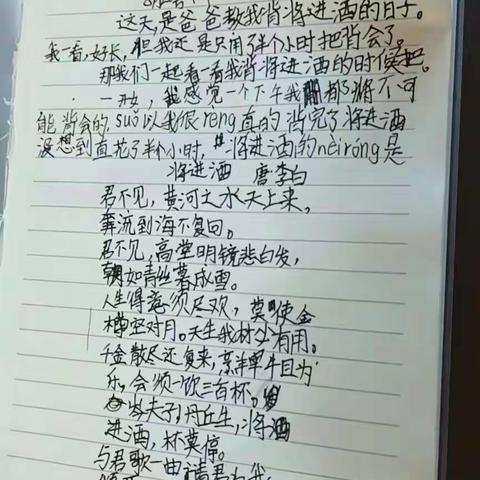 这天,是爸爸教我背将进酒的日子。
我一看,好长,但我还是只用了半个小时把背会了。
那我们一起看一看我背将进酒的时候吧。
一开始,我感觉一个下午我都将不可
能背会的,suǒ以我很reng真的背完了将进酒
没想到直花了半个小时,将进酒的nèiróng是
将进酒 唐李白
君不见,黄河之水天上来,
奔流到海不复回。
君不见,高堂明镜悲白发,
朝如青丝暮成雪。
人生得意须尽欢,莫使金
樽空对月。天生我材必有用。
千金散尽还复来,烹羊宰牛且为
乐,会须一饮三百杯。
岑夫子,丹丘生,将酒
进酒,杯莫停。
与君歌一曲请君为我